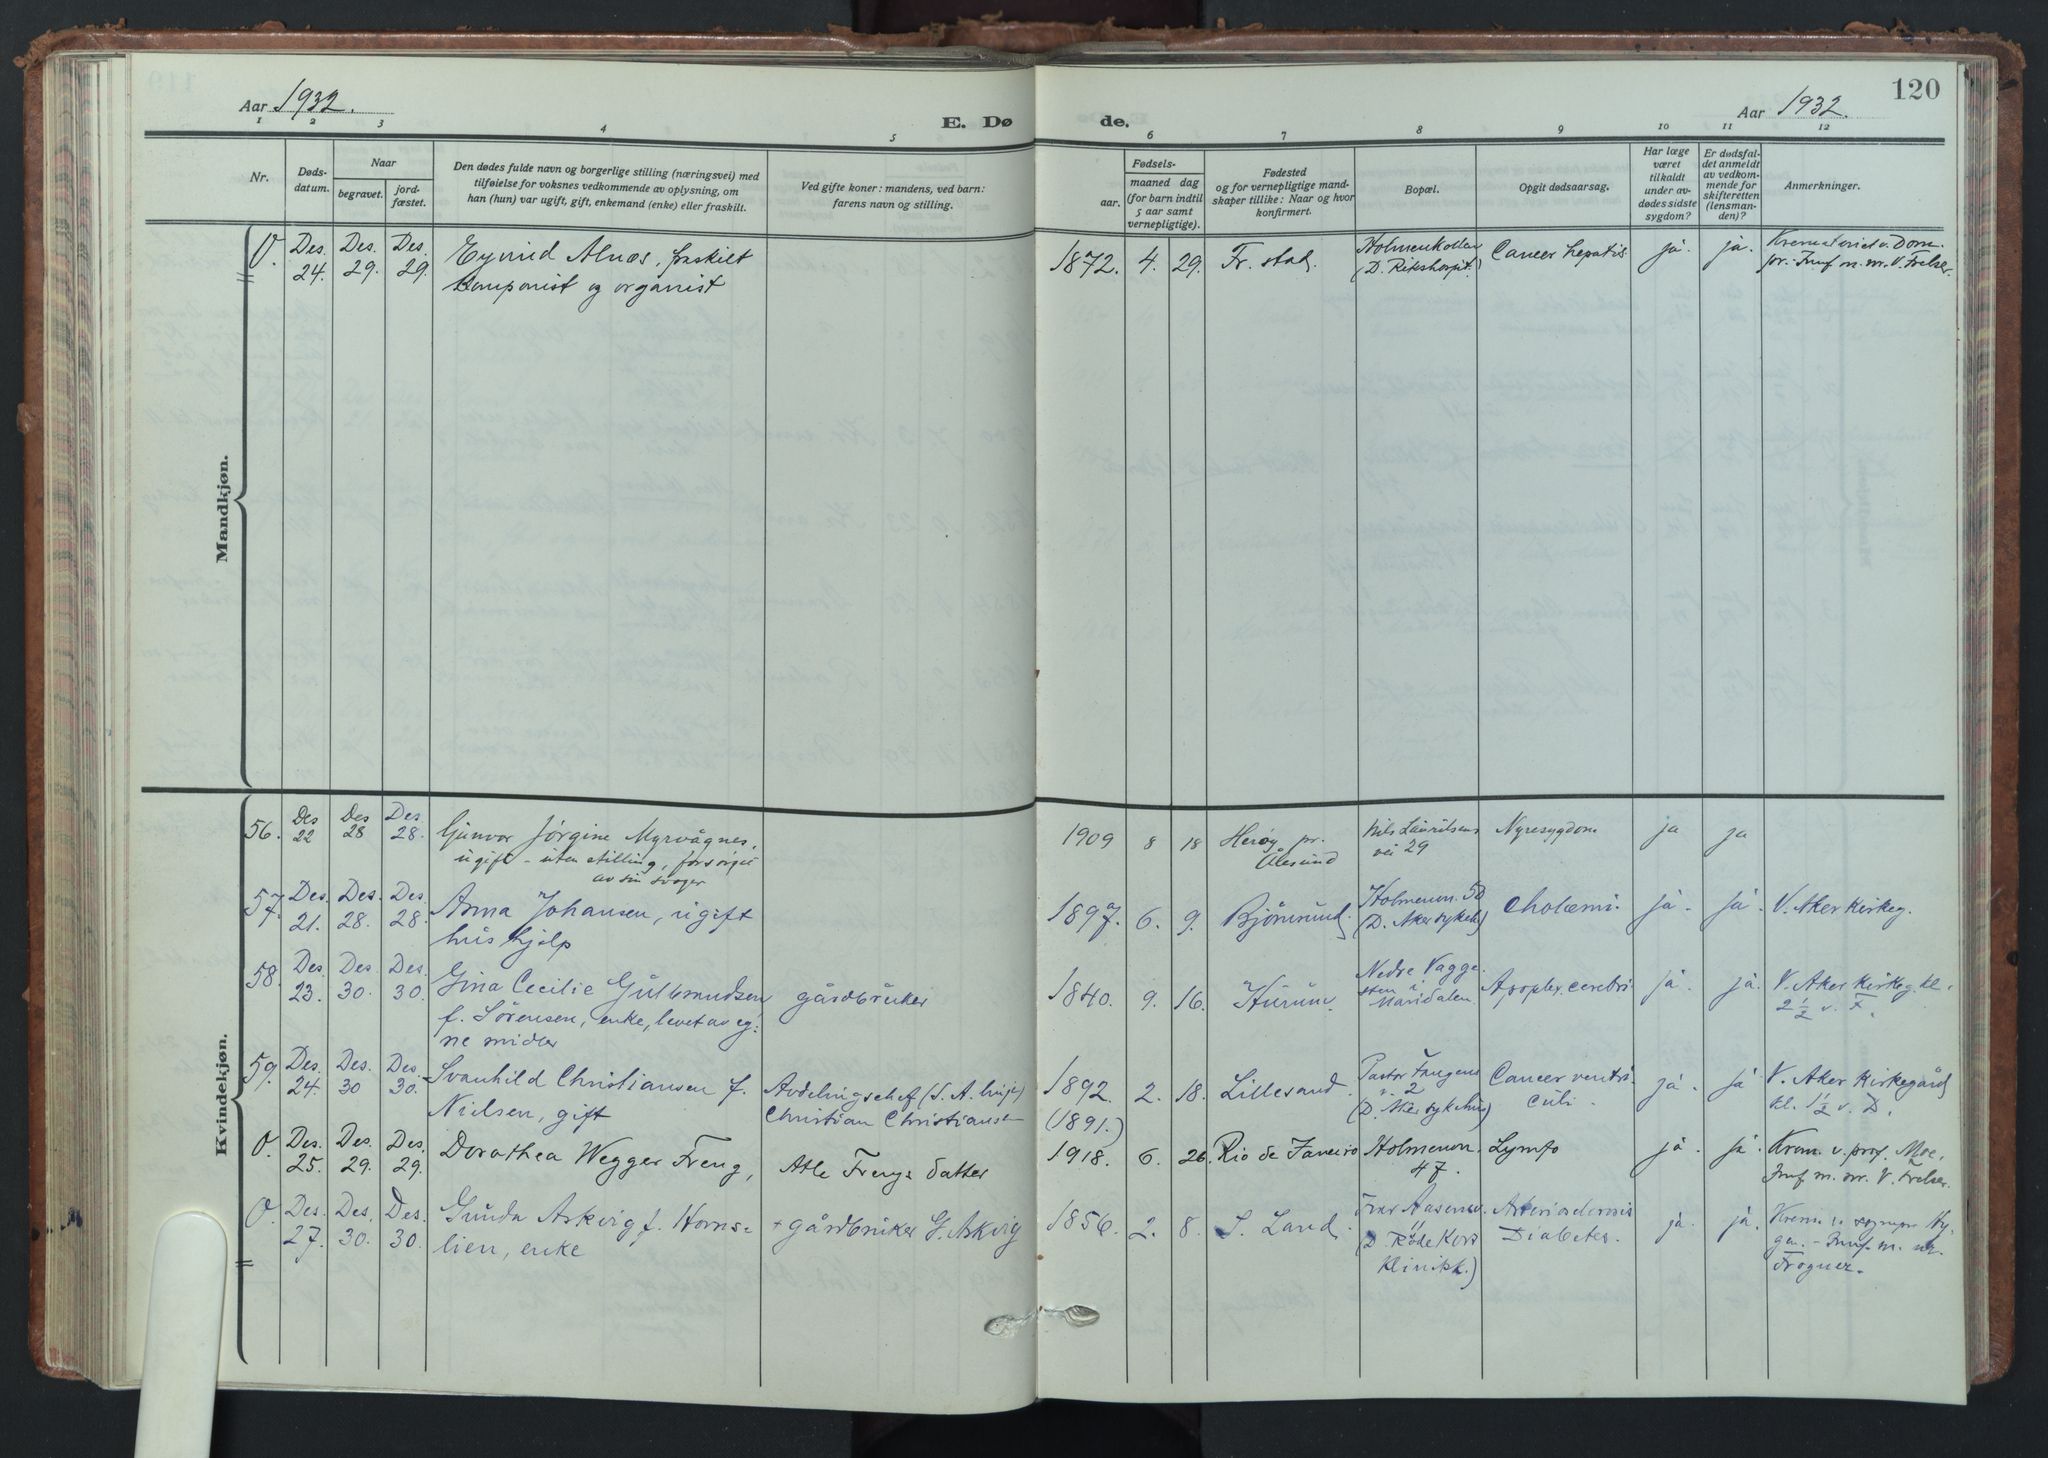 Aar 1932.
E. Døde.
Aar 1932.
120
1 2 3 4 5 6 7 8 9 10 11 12
Nr.
Døds-
datum.
Naar
begravet.
jord-
fæstet.
Den dødes fulde navn og borgerlige stilling (næringsvei) med
tilføielse for voksnes vedkommende av oplysning, om
han (hun) var ugift, gift, enkemand (enke) eller fraskilt.
Ved gifte koner: mandens, ved barn:
farens navn og stilling.
Fødsels-
aar.
maaned
dag
(for barn indtil
5 aar samt
vernepligtige).
Fødested
og for vernepligtige mand-
skaper tillike: Naar og hvor
konfirmert.
Bopæl.
Opgit dødsaarsag.
Har læge
været
tilkaldt
under av-
dødes sidste
sygdom?
Er dødsfal-
det anmeldt
av vedkom-
mende for
skifteretten
(lensman-
den)?
Anmerkninger.
Mandkjøn.
0. Des. Des. Des. Eyvind Alnæs, fraskilt 1872. 4. 29. Fr.stad. Holmenkollen Cancer hepatis ja. ja. Krematoriet v. Dom-
24. 29. 29. komponist og organist (D. Rikshospit.) pr. - Innf. m. nr. V. Frelser.
Kvindekjøn.
56. Des Des Des. Gunvor Jørgine Myrvågnes, 1909 8 18 Herøy pr. Nils Lauritsens Nyresygdom ja ja
22 28 28. ugift - uten stilling, forsørget Ålesund vei 29
av sin svoger
57. Des. Des. Des. Anna Johansen, ugift 1897. 6. 9. Bjørnsund. Holmenvn. 50 Cholæmi. ja. ja. V. Aker Kirkeg.
21. 28. 28. hushjelp (D. Aker sykehs)
58. Des. Des. Des. Gina Cecilie Gulbrandsen gårdbruker 1840. 9. 16. Hurum. Nedre Vagge- Apoplex. cerebri ja. ja. V. Aker Kirkeg. kl.
23. 30. 30. f. Sørensen, enke, levet av eg- sten i Maridalen. 2 1/2 v. F.
ne midler
59. Des. Des. Des. Svanhild Christiansen f. Avdelingschef (S. A. linje) 1892. 2. 18. Lillesand. Pastor Fangens Cancer ventri- ja. ja. V. Aker Kirkegård
24. 30 30. Nielsen, gift Christian Christiansen (1891.) v. 2 culi. kl. 1 1/2 v. D.
(D. Aker sykehus)
0. Des. Des. Des. Dorothea Wegger Freng, Atle Frengs datter 1918. 6. 26. Rio de Janeiro Holmenvn. Lymfo ja. ja. Krem. v. prof. Moe,
25. 29. 29. 47. Innf. m. nr. V. Frelser.
0. Des. Des. Des. Gunda Askvig f. Horns- + gårdbruker G. Askvig 1856. 2. 8. S. Land. Ivar Aasensv. Arteriosclerosis ja. ja. Krem. v. sognepr. Hy-
27. 30. 30. lien, enke 11 Diabetes. gen. - Innf. m. nr.
(D. Røde Kors Frogner.
Klinikk.)